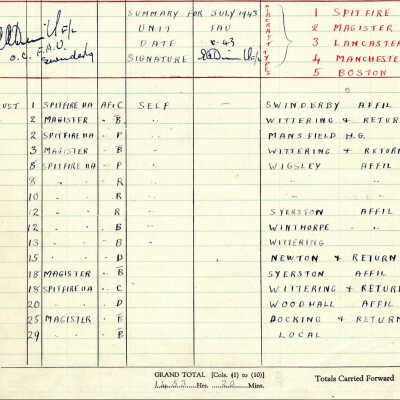 SUMMARY FOR JULY 1943
UNIT 1AU
DATE 8-43
SIGNATURE
AIRCRAFT TYPES
1 SPITFIRE
2 MAGISTER
3 LANCASTER
4 MANCHESTER
5 BOSTON
O.C. F.A.U.
Swinderby
UST 1 SPITFIRE IIA AF-C SELF SWINDERBY AFFIL
2 MAGISTER " B " WITTERING & RETURN
2 SPITFIRE IIA " P " MANSFIELD H.G.
3 MAGISTER " B " WITTERING & RETURN
8 SPITFIRE IIA " P " WIGSLEY AFFIL
8 " " R " " "
10 " " R " " "
12 " " R " SYERSTON AFFIL
12 " " B " WINTHORPE " "
13 " " B " WITTERING
15 " " D NEWTON & RETURN
18 MAGISTER " B SYERSTON AFFIL
18 SPITFIRE IIA " C WITTERING & RETURN
20 " " D WOODHALL AFFIL
25 MAGISTER " E DOCKING & RETURN
29 " " B LOCAL
GRAND TOTAL [Cols. (1) to (10)]
1453 Hrs. 20 Mins.
Totals Carried Forward